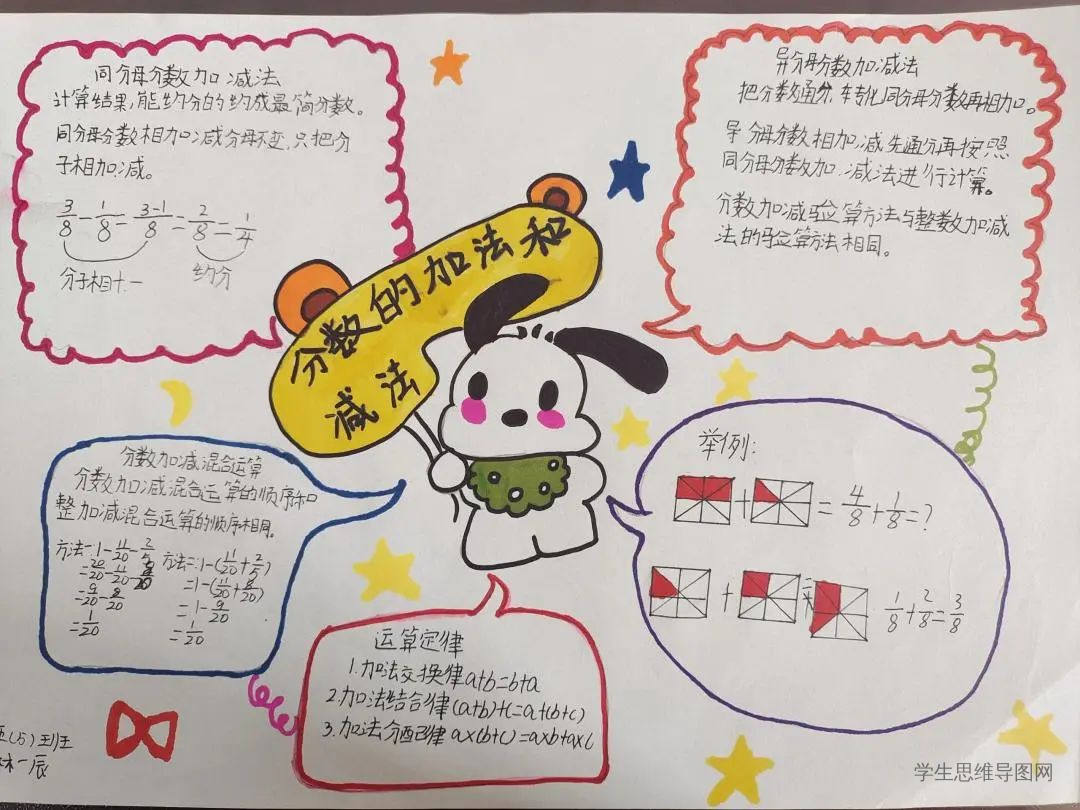 同分母分数加减法
计算结果,能约分的约成最简分数。
同分母分数相加减分母不变,只把分
子相加减。
3/8-1/8=3-1/8=2/8=1/4
约分
异分母分数加减法
把分数通分,转化同分母分数再相加。
异分母分数相加.减先通分再按照
同分母分数加.减法进行计算。
分数加减验算方法与整数加减
法的验算方法相同。
分数的加法和
减法
分数加减混合运算
分数加减混合运算的顺序和
整加减混合运算的顺序相同。
方法一:1-11/20-2/5
=20/20-11/20-8/20
=9/20-8/20
=1/20
方法二:1-(11/20+2/5)
=1-(11/20+8/20)
=1-
=1/20
举例:
+ = 4/8+1/8=?
+ = 1/8+2/8=3/8
运算定律
1.加法交换律a+b=b+a
2.加法结合律(a+b)+c=a+(b+c)
3.加法分配律 a×(b+c)=a×b+a×c
班
一辰
学生思维导图网